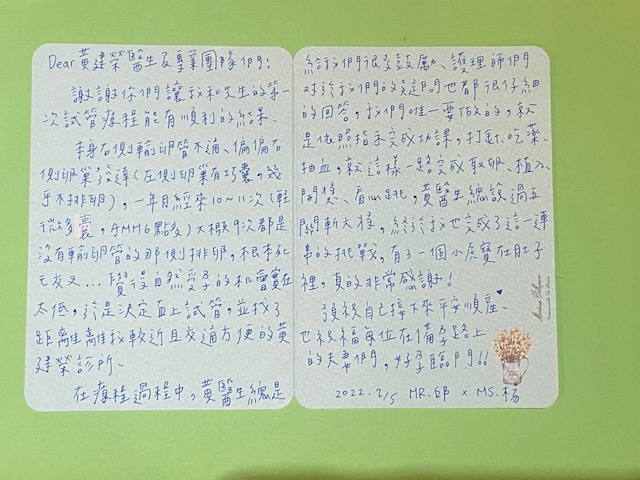 Dear 黃建榮醫生及專業團隊們:
謝謝你們讓我和先生的第一
次試管療程能有順利的結果、
本身右側輸卵管不通、偏偏右
側卵巢發達(左側卵巢有巧囊,幾
乎不排卵),一年月經來10~11次(輕
微多囊,AMH6點多)大概9次都是
沒有輸卵管的那側排卵,根本死
亡交叉...覺得自然受孕的机會實在
太低,於是決定直上試管,並找了
距離離我較近且交通方便的黃
建榮診所、
在療程過程中,黃醫生總是
給我們很多鼓勵、護理師們
對於我們的疑問也都很仔細
的回答,我們唯一要做的,就
是依照指示完成功課,打針、吃藥、
抽血,就這樣一路完成取卵、植入、
開獎、看心跳,黃醫生總說過五
關斬六將,終於我也完成了這一連
串的挑戰,有了一個小虎寶在肚子
裡,真的非常感謝!
預祝自己接下來平安順產、
也祝福每位在備孕路上
的夫妻們,好孕臨門!!
2022.2/5 MR.邱 x MS.楊